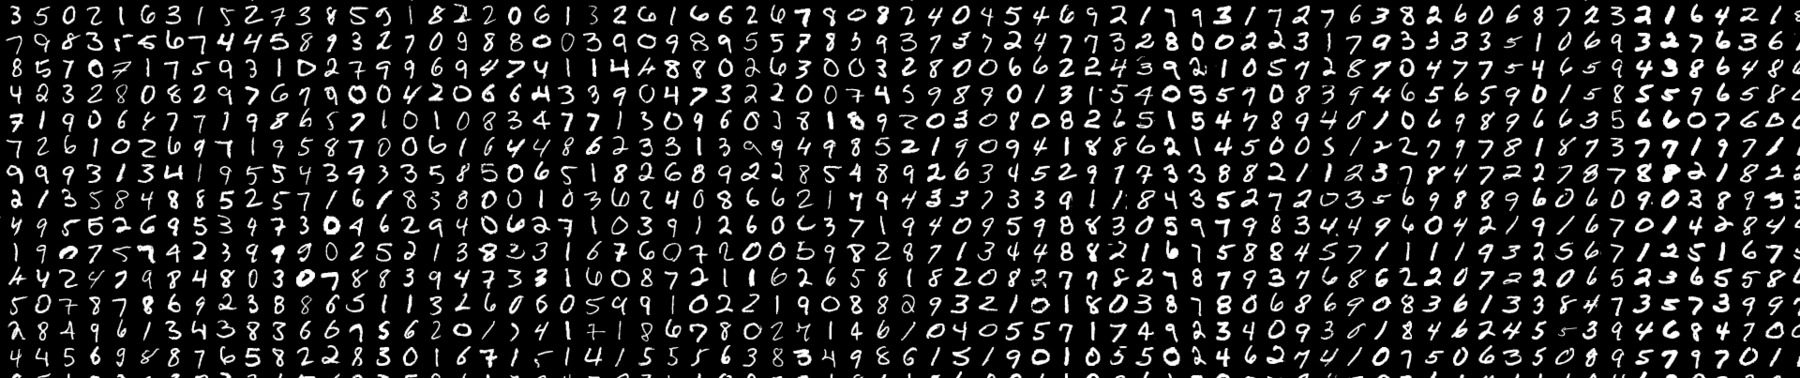 3 5 0 2 1 6 3 1 5 2 7 3 8 5 9 1 8 2 2 0 6 1 3 2 6 1 6 6 2 6 7 8 0 8 2 4 0 4 5 4 6 9 2 1 7 9 3 1 7 2 7 6 3 8 2 6 0 6 8 7 2 3 2 1 6 4 2 1
7 9 8 3 5 5 6 7 4 4 5 8 9 3 2 7 0 9 8 8 0 0 3 9 0 9 8 9 5 5 7 8 3 9 3 7 3 7 2 4 7 7 3 2 8 0 0 2 2 3 1 7 9 3 3 3 3 5 1 0 6 9 3 2 7 6 3 6
8 5 7 0 7 1 7 5 9 3 1 0 2 7 9 9 6 9 4 7 4 1 1 4 4 8 8 0 2 6 3 0 0 3 2 8 0 0 6 6 2 2 4 3 9 2 1 0 5 7 2 8 7 0 4 7 7 5 4 6 5 9 4 3 8 6 4 8
4 2 3 2 8 0 8 2 9 7 6 7 9 0 0 4 2 0 6 6 4 3 3 9 0 4 7 3 2 2 0 0 7 4 5 9 8 9 0 1 3 1 5 4 0 5 5 7 0 8 3 9 4 6 5 6 5 9 0 1 5 8 5 5 9 6 5 8
7 1 9 0 6 4 7 7 1 9 8 6 5 7 1 0 1 0 8 3 4 7 7 1 3 0 9 6 0 3 8 1 8 9 2 0 3 0 8 0 8 2 6 5 1 5 4 7 8 9 4 0 1 0 6 9 8 9 6 6 3 5 6 6 0 7 6 0
7 2 6 1 0 2 6 9 7 1 9 5 8 7 0 0 6 1 6 4 4 8 6 2 3 3 1 3 9 9 4 9 8 5 2 1 9 0 9 4 1 8 8 6 2 1 4 5 0 0 5 1 2 2 7 9 7 8 1 8 7 3 7 7 1 9 7 1
9 9 9 3 1 3 4 1 9 5 5 4 3 9 3 3 5 8 5 0 6 5 1 8 2 6 8 9 2 2 8 5 4 8 9 2 6 3 4 5 2 9 1 7 3 3 8 8 2 1 1 2 3 7 8 4 7 2 2 7 8 7 8 8 2 1 8 2
2 1 3 5 8 4 8 8 5 2 5 7 1 6 1 8 3 8 0 0 1 0 3 6 2 4 0 8 6 6 2 1 7 9 4 3 3 7 3 3 9 1 1 8 4 3 5 2 7 2 0 3 5 6 9 8 8 9 6 0 6 0 9 0 3 8 9 3
4 9 5 5 2 6 9 5 3 4 7 3 0 4 6 2 9 4 0 6 2 7 1 0 3 9 1 2 6 0 6 3 7 1 9 4 0 9 5 9 8 8 3 0 5 9 7 9 8 3 4 4 9 6 0 4 2 1 9 1 6 7 0 1 4 2 8 4
1 9 0 7 5 7 4 2 3 9 9 0 0 2 5 2 1 3 8 3 3 1 6 7 6 0 7 2 0 0 5 9 8 2 8 7 1 3 4 4 8 8 2 1 6 7 5 8 8 4 5 7 1 1 1 1 9 3 2 5 6 7 1 2 5 1 6 7
4 4 2 4 7 9 8 4 8 0 3 0 7 8 8 3 9 4 7 3 3 1 6 0 8 7 2 1 1 6 2 6 5 8 1 8 2 0 8 2 7 7 8 2 7 8 7 9 3 7 6 8 6 2 2 0 7 2 2 0 6 5 2 3 6 5 5 8
5 0 7 8 7 8 6 9 2 3 8 8 6 5 1 1 3 2 6 0 6 0 5 9 9 1 0 2 2 1 9 0 8 8 2 9 3 2 1 0 1 8 0 3 8 7 8 0 6 8 6 9 0 8 3 6 1 3 3 8 4 7 3 5 7 3 9 9
2 8 4 9 6 1 3 4 3 8 3 6 6 7 5 6 2 0 1 7 4 1 7 1 8 6 7 8 0 2 7 1 4 6 1 0 4 0 5 5 7 1 7 4 9 2 3 4 0 9 3 0 1 8 4 6 2 4 5 5 3 9 4 6 8 4 7 0
4 4 5 6 9 8 8 7 6 5 8 2 2 8 3 0 1 6 7 1 5 1 4 1 5 5 5 6 3 8 3 4 9 8 6 1 5 1 9 0 1 0 5 5 0 2 4 6 2 7 4 1 0 7 5 0 6 3 5 0 8 9 5 7 9 7 0 1